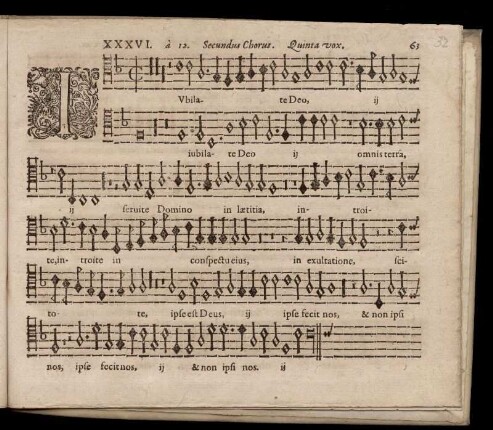 XXXVI. à 12. Secundus Chorus. Quinta vox. 63 32
IVbila- te Deo, ij
iubila- te Deo ij omnis terra,
ij seruite Domino in lætitia, in- troi-
te, in- troite in conspectu eius, in exultatione, sci-
to- te, ipse est Deus, ij ipse fecit nos, & non ipsi
nos, ipse fecit nos, ij & non ipsi nos. ij